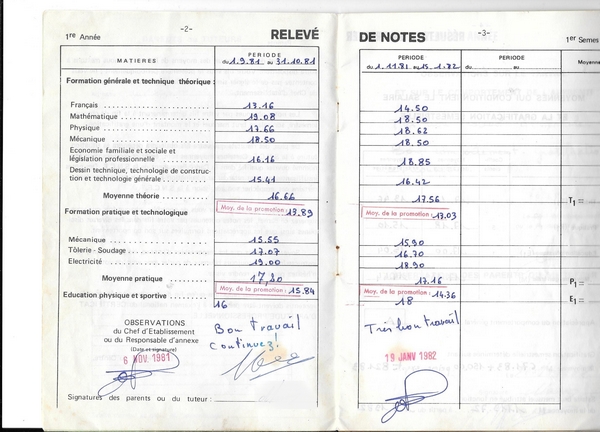 -2-
1re Année
RELEVÉ
MATIERES
PERIODE
du 1.9.81 au 31.10.81
Formation générale et technique théorique :
Français 13.16
Mathématique 19.08
Physique 17.66
Mécanique 18.50
Economie familiale et sociale et
législation professionnelle 16.16
Dessin technique, technologie de construc-
tion et technologie générale 15.41
Moyenne théorie 16.66
Moy. de la promotion : 13.89
Formation pratique et technologique
Mécanique 15.55
Tôlerie - Soudage 17.07
Electricité 19.00
Moyenne pratique 17,20
Moy. de la promotion : 15.84
Education physique et sportive 16
OBSERVATIONS
du Chef d'Etablissement
ou du Responsable d'annexe
(Date et signature)
6 NOV. 1981
Bon travail
continuez!
Signatures des parents ou du tuteur :
-3-
DE NOTES
1er Semes
PERIODE
du 1.11.81 au 15.1.82
PERIODE
du au
Moyenne
14.50
18.50
18.62
18.50
18.85
16.42
17.56
T1 =
Moy. de la promotion : 13.03
15.90
16.70
18.90
17.16
P1 =
Moy. de la promotion : 14.36
18
E1 =
Très bon travail
19 JANV 1982